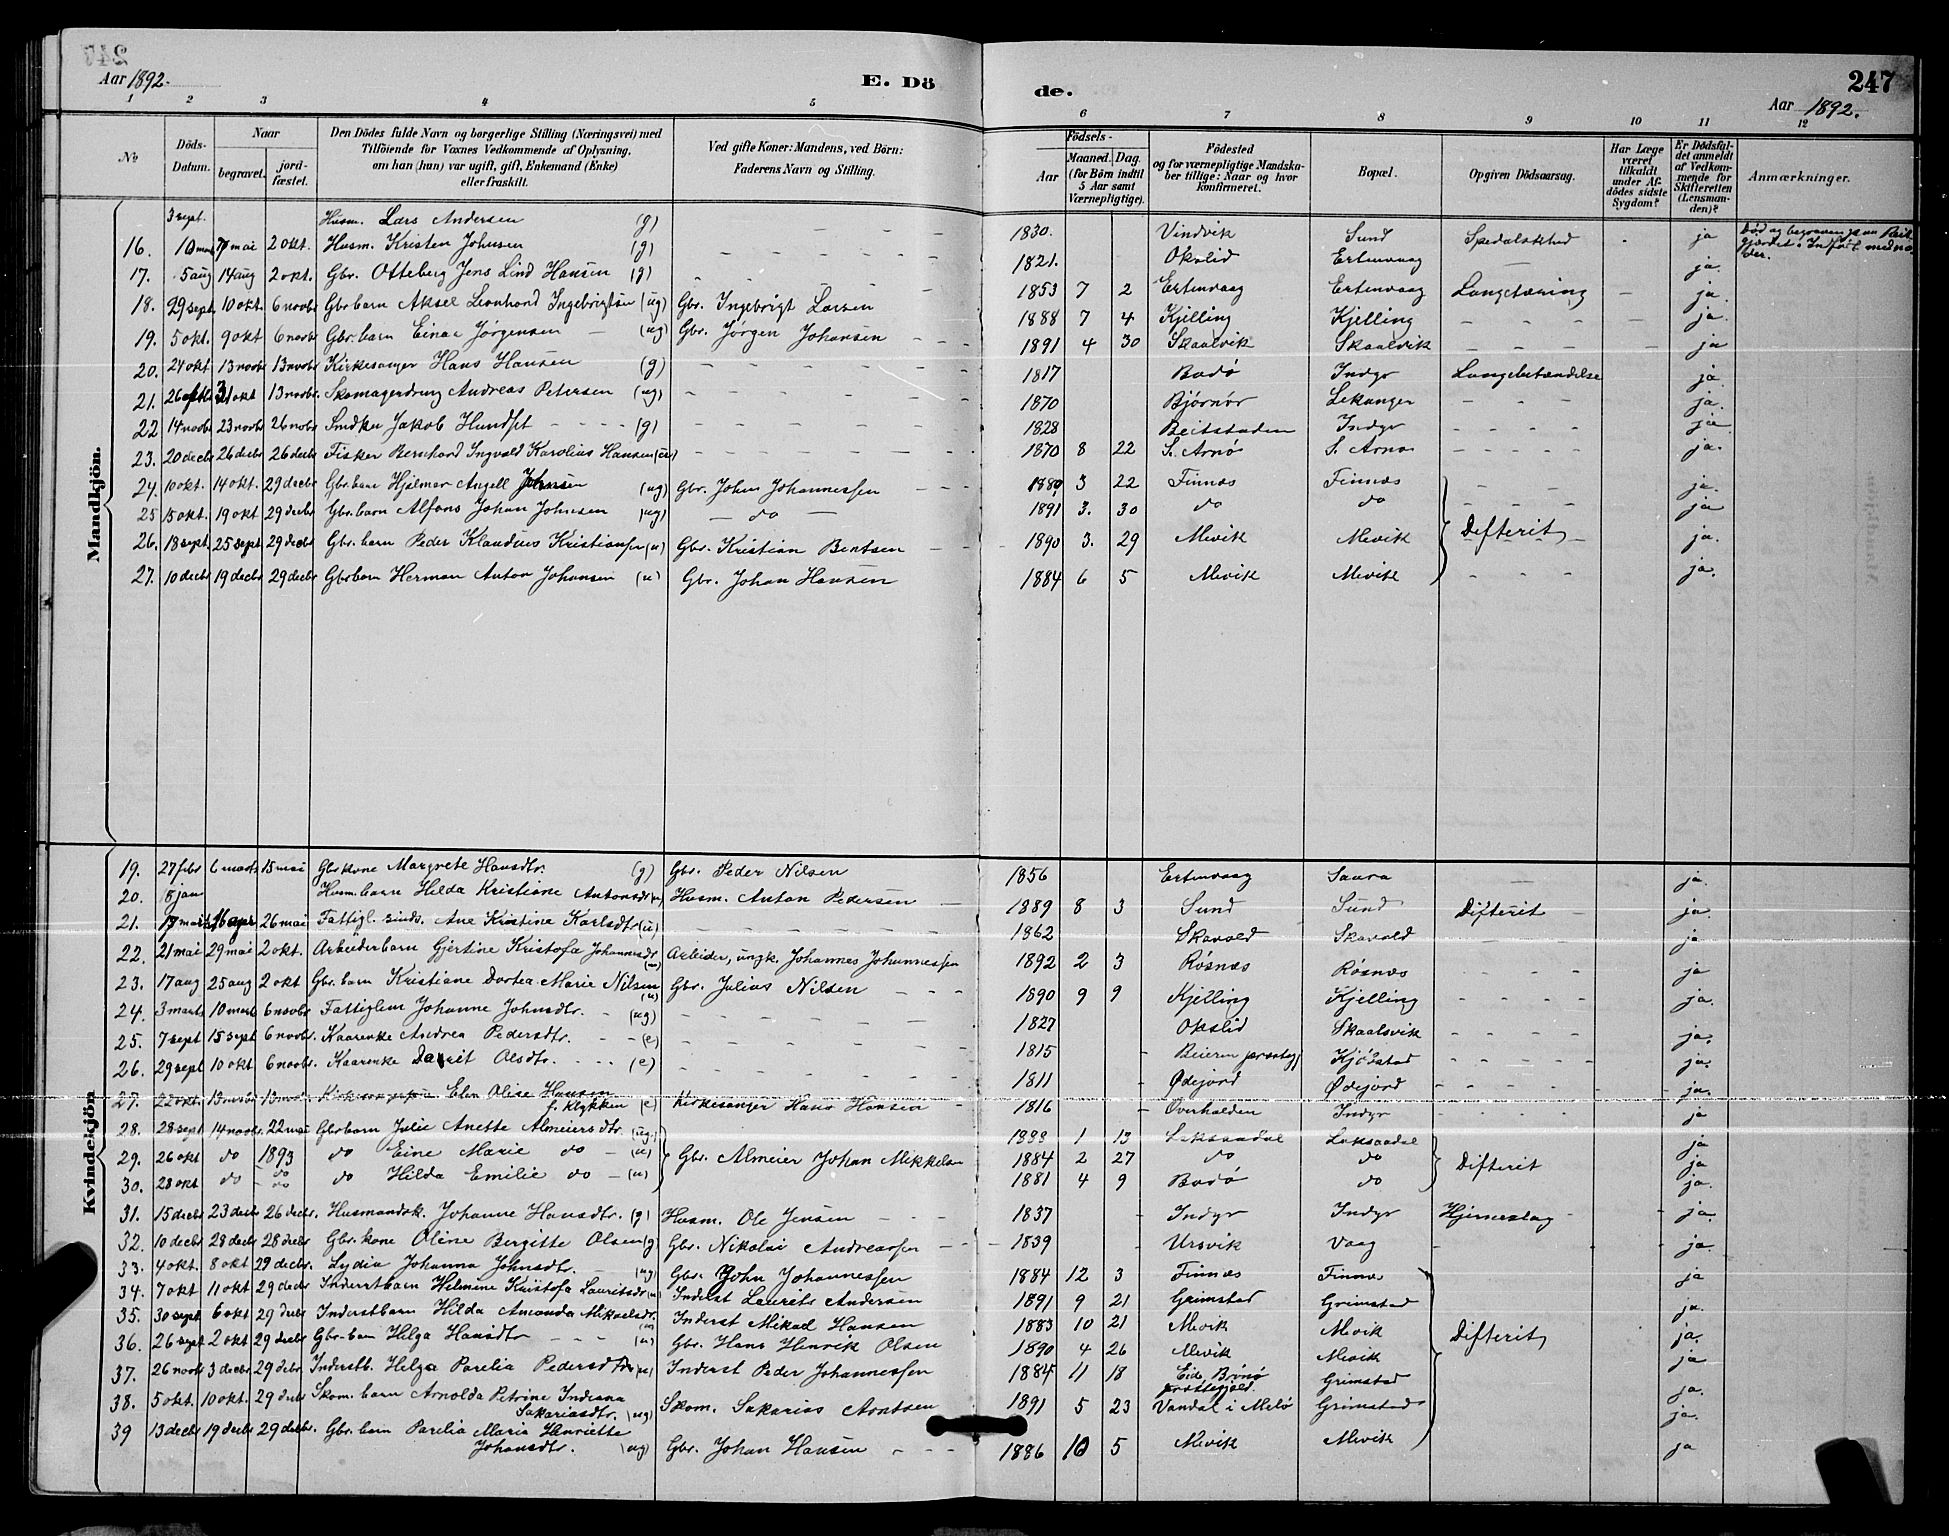 247
Aar 1892.
E. Dö
de.
247
Aar 1892.
1 2 3 4 5 6 7 8 9 10 11 12
No.
Döds-Datum.
Naar
begravet.
jord-fæstet.
Den Dödes fulde Navn og borgerlige Stilling (Næringsvei) med
Tilföiende for Voxnes Vedkommende af Oplysning,
om han (hun) var ugift, gift, Enkemand (Enke)
eller fraskilt.
Ved gifte Koner: Mandens, ved Börn:
Faderens Navn og Stilling.
Födsels-
Aar
Maaned. Dag.
(for Börn indtil
5 Aar samt
Værnepligtige).
Födested
og for værnepligtige Mandska-
ber tillige: Naar og hvor
konfirmeret.
Bopæl.
Opgiven Dödsaarsag.
Har Læge
været
tilkaldt
under Af-
dödes sidste
Sygdom?
Er Dödsfal-
det anmeldt
af Vedkom-
mende for
Skifteretten
(Lensman-
den)?
Anmærkninger.
Mandkjön.
3 sept. Husm. Lars Andersen (g) 1830. Vindvik Sund Spedalskhed - ja
16. 10 mai 2 okt. Husm. Kristen Johnsen (g) 1821. Okslid Ertenvaag — ja.
17. 5 aug 14 aug 2 okt. Gbr. Otteberg Jens Lind Hansen (g) 1853 7 2 Ertenvaag Ertenvaag Lungetæring — ja.
18. 29 sept. 10 okt. 6 novbr Gbr. barn Aksel Leonhard Ingebrigtsen (ug) Gbr. Ingebrigt Larsen 1888 7 4 Kjelling Kjelling - - - ja.
19. 5 okt. 9 okt 6 novbr Gbr. barn Einar Jörgensen — (ug) Gbr. Jörgen Johansen 1891 4 30 Skaalvik Skaalvik - - - ja
20. 24 okt 13 novbr 13 novbr Kirkesanger Hans Hansen (g) 1817 Bodö Indyr Lungebetændelse ja.
21. 31 okt 13 novbr. Skomagerdreng Andreas Petersen (ug) 1870 Bjørnør Lekanger - - - ja.
22 14 novbr 23 novbr 26 novbr Jakob Hundset - - - - (g) 1828 Beitstaden Indyr - - - - ja
23. 20 decbr 26 decbr 26 decbr Fisker Bernhard Ingvald Karolius Hansen (u) 1870 8 22 S. Arnö S. Arnö - - - - ja.
24. 10 okt. 14 okt. 29 decbr Gbr. barn Hjalmar Angell Johnsen (ug) Gbr. John Johannessen 3 22 Finnæs Finnæs - - ja.
25 15 okt. 19 okt 29 decbr Gbr. barn Alfons Johan Johnsen (ug) — do — 1891 3. 30 do do ja
26. 18 sept. 25 sept 29 decbr Gbr. barn Peder Klaudius Kristiansen (u) Gbr. Kristian Bentsen 1890 3. 29 Mevik Mevik Difterit ja.
27. 10 decbr 19 decbr 29 decbr Gbr barn Herman Anton Johansen (u) Gbr. Johan Hansen 1884 6 5 Mevik Mevik - - - ja.
Kvindekjön
19. 27 febr 6 marts 15 mai Gbr kone Margrete Hansdtr. (g) Gbr. Peder Nilsen 1856 Ertenvaag Saura — ja.
20. 8 jan Husm. barn Hilda Kristiane Antonsdtr (u) Husm. Anton Pedersen 1889 8 3 Sund Sund Difterit - ja.
21. 26 mai Fattigl. sinds. Ane Kristine Karlsdtr (u) 1862 Skavold Skavold ja
22. 21 mai 29 mai 2 okt. Arbeiderbarn Gjertine Kristofa Johannesdtr Arbeider, ungk. Johannes Johannessen 1892 2 3 Røsnæs Røsnæs - - - ja
23. 17 aug 25 aug 2 okt Gbr. barn Kristiane Dortea Marie Nilsen (u) Gbr. Julius Nilsen 1890 9 9 Kjelling Kjelling - - - - ja.
24. 3 marts 10 marts 6 novbr Fattiglem Johanne Johnsdtr. (ug) 1827 Okslid Skaalsvik ja.
25. 7 sept 15 sept 6 novbr. Kaarenke Andrea Pedersdtr. (e) 1815 Beieren præstegj Kjøbstad ja.
26. 29 sept 10 okt 6 novbr. Kaarenke Olsdtr. (e) 1811 Ødejord Ødejord ja.
27. 22 okt. Elen Olise Hansen
f. Klykken (e) Kirkesanger Hans Hansen 1816 Overhalden Indyr ja
28. 28 sept 14 novbr. 22 mai Gbr barn Julie Anette Almeiersdtr. (ug) 1 13 Laksaadal Laksaadal ja
29. 26 okt do 1893 do Eine Marie do - (u) Gbr. Almeier Johan Mikkelsen 1884 2 27 do do Difterit ja
30. 28 okt do do do Hilda Emilie do - (u) 1881 4 9 Bodö do ja.
31. 15 decbr 23 decbr 26 decbr. Husmandsk. Johanne Hansdtr. (g) Husm. Ole Jensen 1837 Indyr Indyr Hjerneslag ja.
32. 10 decbr 28 decbr 28 decbr Gbr. kone Oline Birgitte Olsen (g Gbr. Nikolai Andreassen 1839 Ursvik Vaag ja.
33. 4 okt. 8 okt 29 decbr. Lydia Johanna Johnsdtr. (ug) Gbr. John Johannessen 1884 12 3 Finnæs Finnæs ja
34. 7 okt 11 okt 29 decbr Inderstbarn Helmine Kristofa Lauritsdtr (u) Inderst Laurits Andersen 1891 9 21 Grimstad Grimstad ja.
35. 30 sept 6 okt 29 decbr Inderstbarn Hilda Amanda Mikaelsdtr. Inderst Mikael Hansen 1883 10 21 Mevik Mevik ja.
36. 26 sept 2 okt 29 decbr Gbr. barn Helga Hansdtr - - - (u) Gbr. Hans Henrik Olsen 1890 4 26 Mevik Mevik Difterit ja
37. 26 novbr 3 decbr 29 decbr. Inderstb. Helga Parelia Pedersdtr (u) Inderst Peder Johannessen 1884 11 18 Eid, Brönö
Grimstad ja.
38. 5 okt. 10 okt. 29 decbr Skom. barn Arnolda Petrine Indiana
Sakariasdtr. (ug) Skom. Sakarias Arntsen 1891 5 23 Vandal i Melö Grimstad ja.
39 13 decbr 19 decbr 29 decbr. Gbr. barn Parelia Maria Henriette
Johansdtr. (ug) Gbr. Johan Hansen 1886 10 5 Mevik Mevik ja